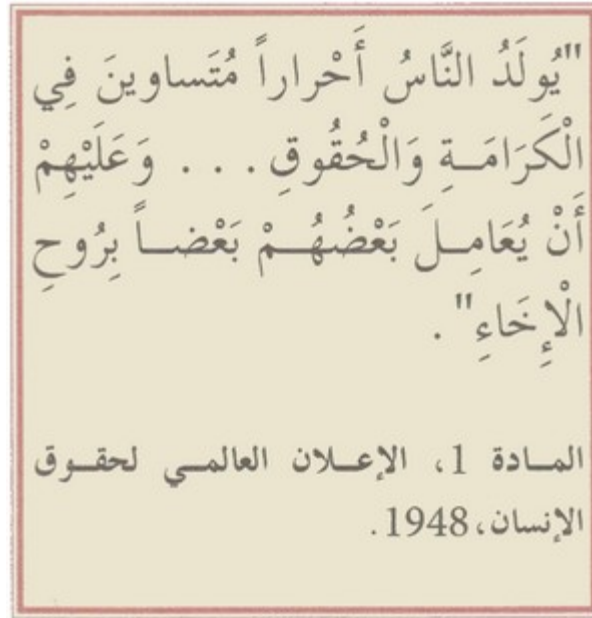 "يُولَدُ النَّاسُ أَحْراراً مُتَساوينَ فِي
الْكَرَامَةِ وَالْحُقُوقِ . . . وَعَلَيْهِمْ
أَنْ يُعَامِلَ بَعْضُهُمْ بَعْضاً بِرُوحِ
الْإِخَاءِ" .
المادة 1، الإعلان العالمي لحقوق
الإنسان، 1948 .